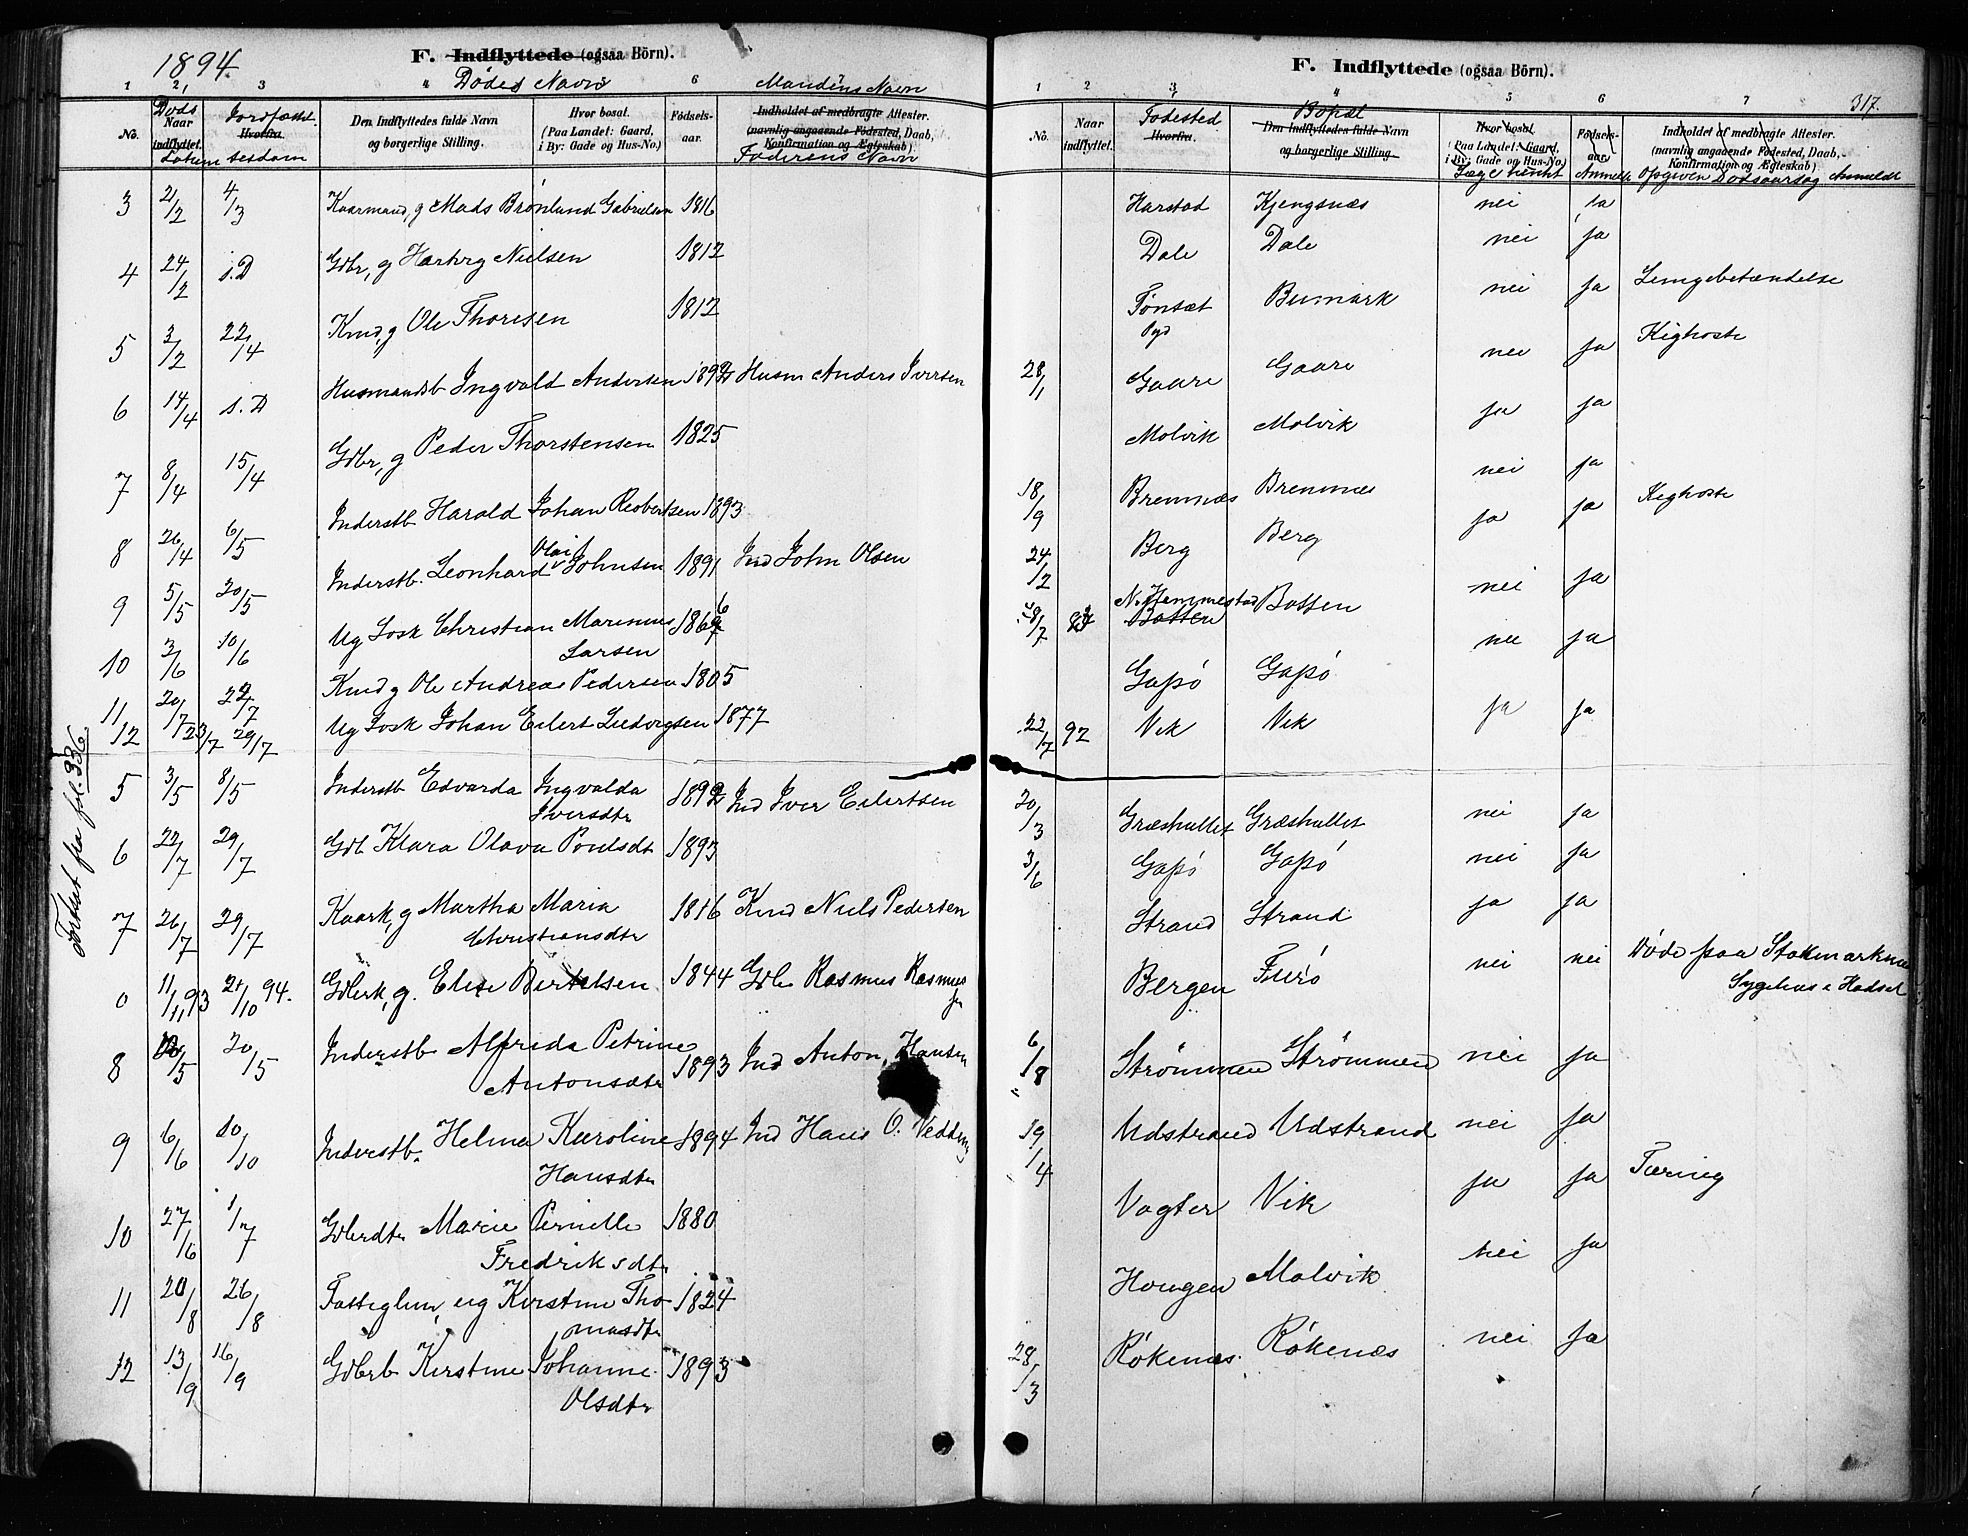 1894.
F. Indflyttede (ogsaa Börn).
Dødes Navn
Mandens Navn
1 2 3 4 5 6
No.
Døds
Naar indflyttet.
Jordfæst.
Hvorfra.
Den Indflyttedes fulde Navn og borgerlige Stilling.
Hvor bosat. (Paa Landet: Gaard, i By: Gade og Hus-No.)
Fødsels-aar.
Indholdet af medbragte Attester. (navnlig angaaende Fødested, Daab, Konfirmation og Ægteskab)
Faderens Navn
3 2/2 4/3 Kaarmand, g Mads Brönlund Gabrielsen 1816
4 24/2 s.D Gdbr, g Hartvig Nielsen 1812
5 3/2 22/4 Kmd, g Ole Thoresen 1812
6 14/4 s.D Husmandsb Ingvald Andersen 1892 Husm Anders Iversen
7 8/4 15/4 Gdbr, g Peder Thorstensen 1825
8 26/4 6/5 Inderstb Harald Johan Robertsen 1893
9 5/5 20/5 Inderstb. Leonhard Olai Johnsen 1891 Ind John Olsen
10 3/6 10/6 Ug Losk Christian Marinius Larsen 186
11 20/7 22/7 Kmd g Ole Andreas Pedersen 1805
12 23/7 29/7 Ug Losk Johan Eilert Ludvigsen 1877
Forsat fra fol. 336.
5 3/5 8/5 Inderstb Edvarda Ingvalda Iversdtr 1892 Ind Iver Eilertsen
6 22/7 29/7 Gdb Klara Olava Poulsdt 1893
7 26/7 29/7 Kaark, g Martha Maria Christiansdtr 1816 Kmd Niels Pedersen
0 11/11 93 21/10 94. Gdbrk, g. Elise Bertelsen 1844 Gdbr Rasmus Rasmussen
8 /5 20/5 Inderstb Alfrida Petrine Antonsdtr 1893 Ind Anton Hansen
9 6/6 10/10 Inderstb. Helma Karoline Hansdtr 1894 Ind Hans O.
10 27/6 1/7 Gdbrdtr Marie Pernille Fredriksdtr 1880
11 20/8 26/8 Fattiglem, ug Kirstine Thomasdtr 1824
12 13/9 16/9 Gdbrb Kirstine Johanne Olsdtr 1893
F. Indflyttede (ogsaa Börn).
317.
1 2 3 4 5 6 7
No.
Naar indflyttet.
Fødested.
Hvorfra.
Bopæl
Den Indflyttedes fulde Navn og borgerlige Stilling.
Hvor bosat. (Paa Landet: Gaard, i By: Gade og Hus-No.)
Læge hentet
Fødsels-aar.
Anmeldt
Indholdet af medbragte Attester. (navnlig angaaende Födested, Daab, Konfirmation og Ægteskab)
Opgiven Dødsaarsag Anmeldt
Harstad Kjengsnæs nei ja
Dale Dale nei ja
Tönset Bumark nei ja Lungebetændelse
28/1 Gaare Gaare nei ja Kighoste
Molvik Molvik ja ja
18/9 Bremnæs Bremnæs nei ja
24/2 Berg Berg ja ja Kighoste
28/7 N. Hemmestad Botten Botten nei ja
Gapö Gapö nei ja
22/7 92 Vik Vik ja ja
20/3 Græshullet Græshullet nei ja
3/6 Gapö Gapö nei ja
Strand Strand ja ja
Bergen Furö nei nei Døde paa Stokmarknæs Sygehus i Hadsel
6/8 Strømmen Strømmen nei ja
19/4 Udstrand Udstrand nei ja
Vagter Vik ja ja Tæring
Hougen Molvik nei ja
28/3 Rökenæs. Rökenæs nei ja